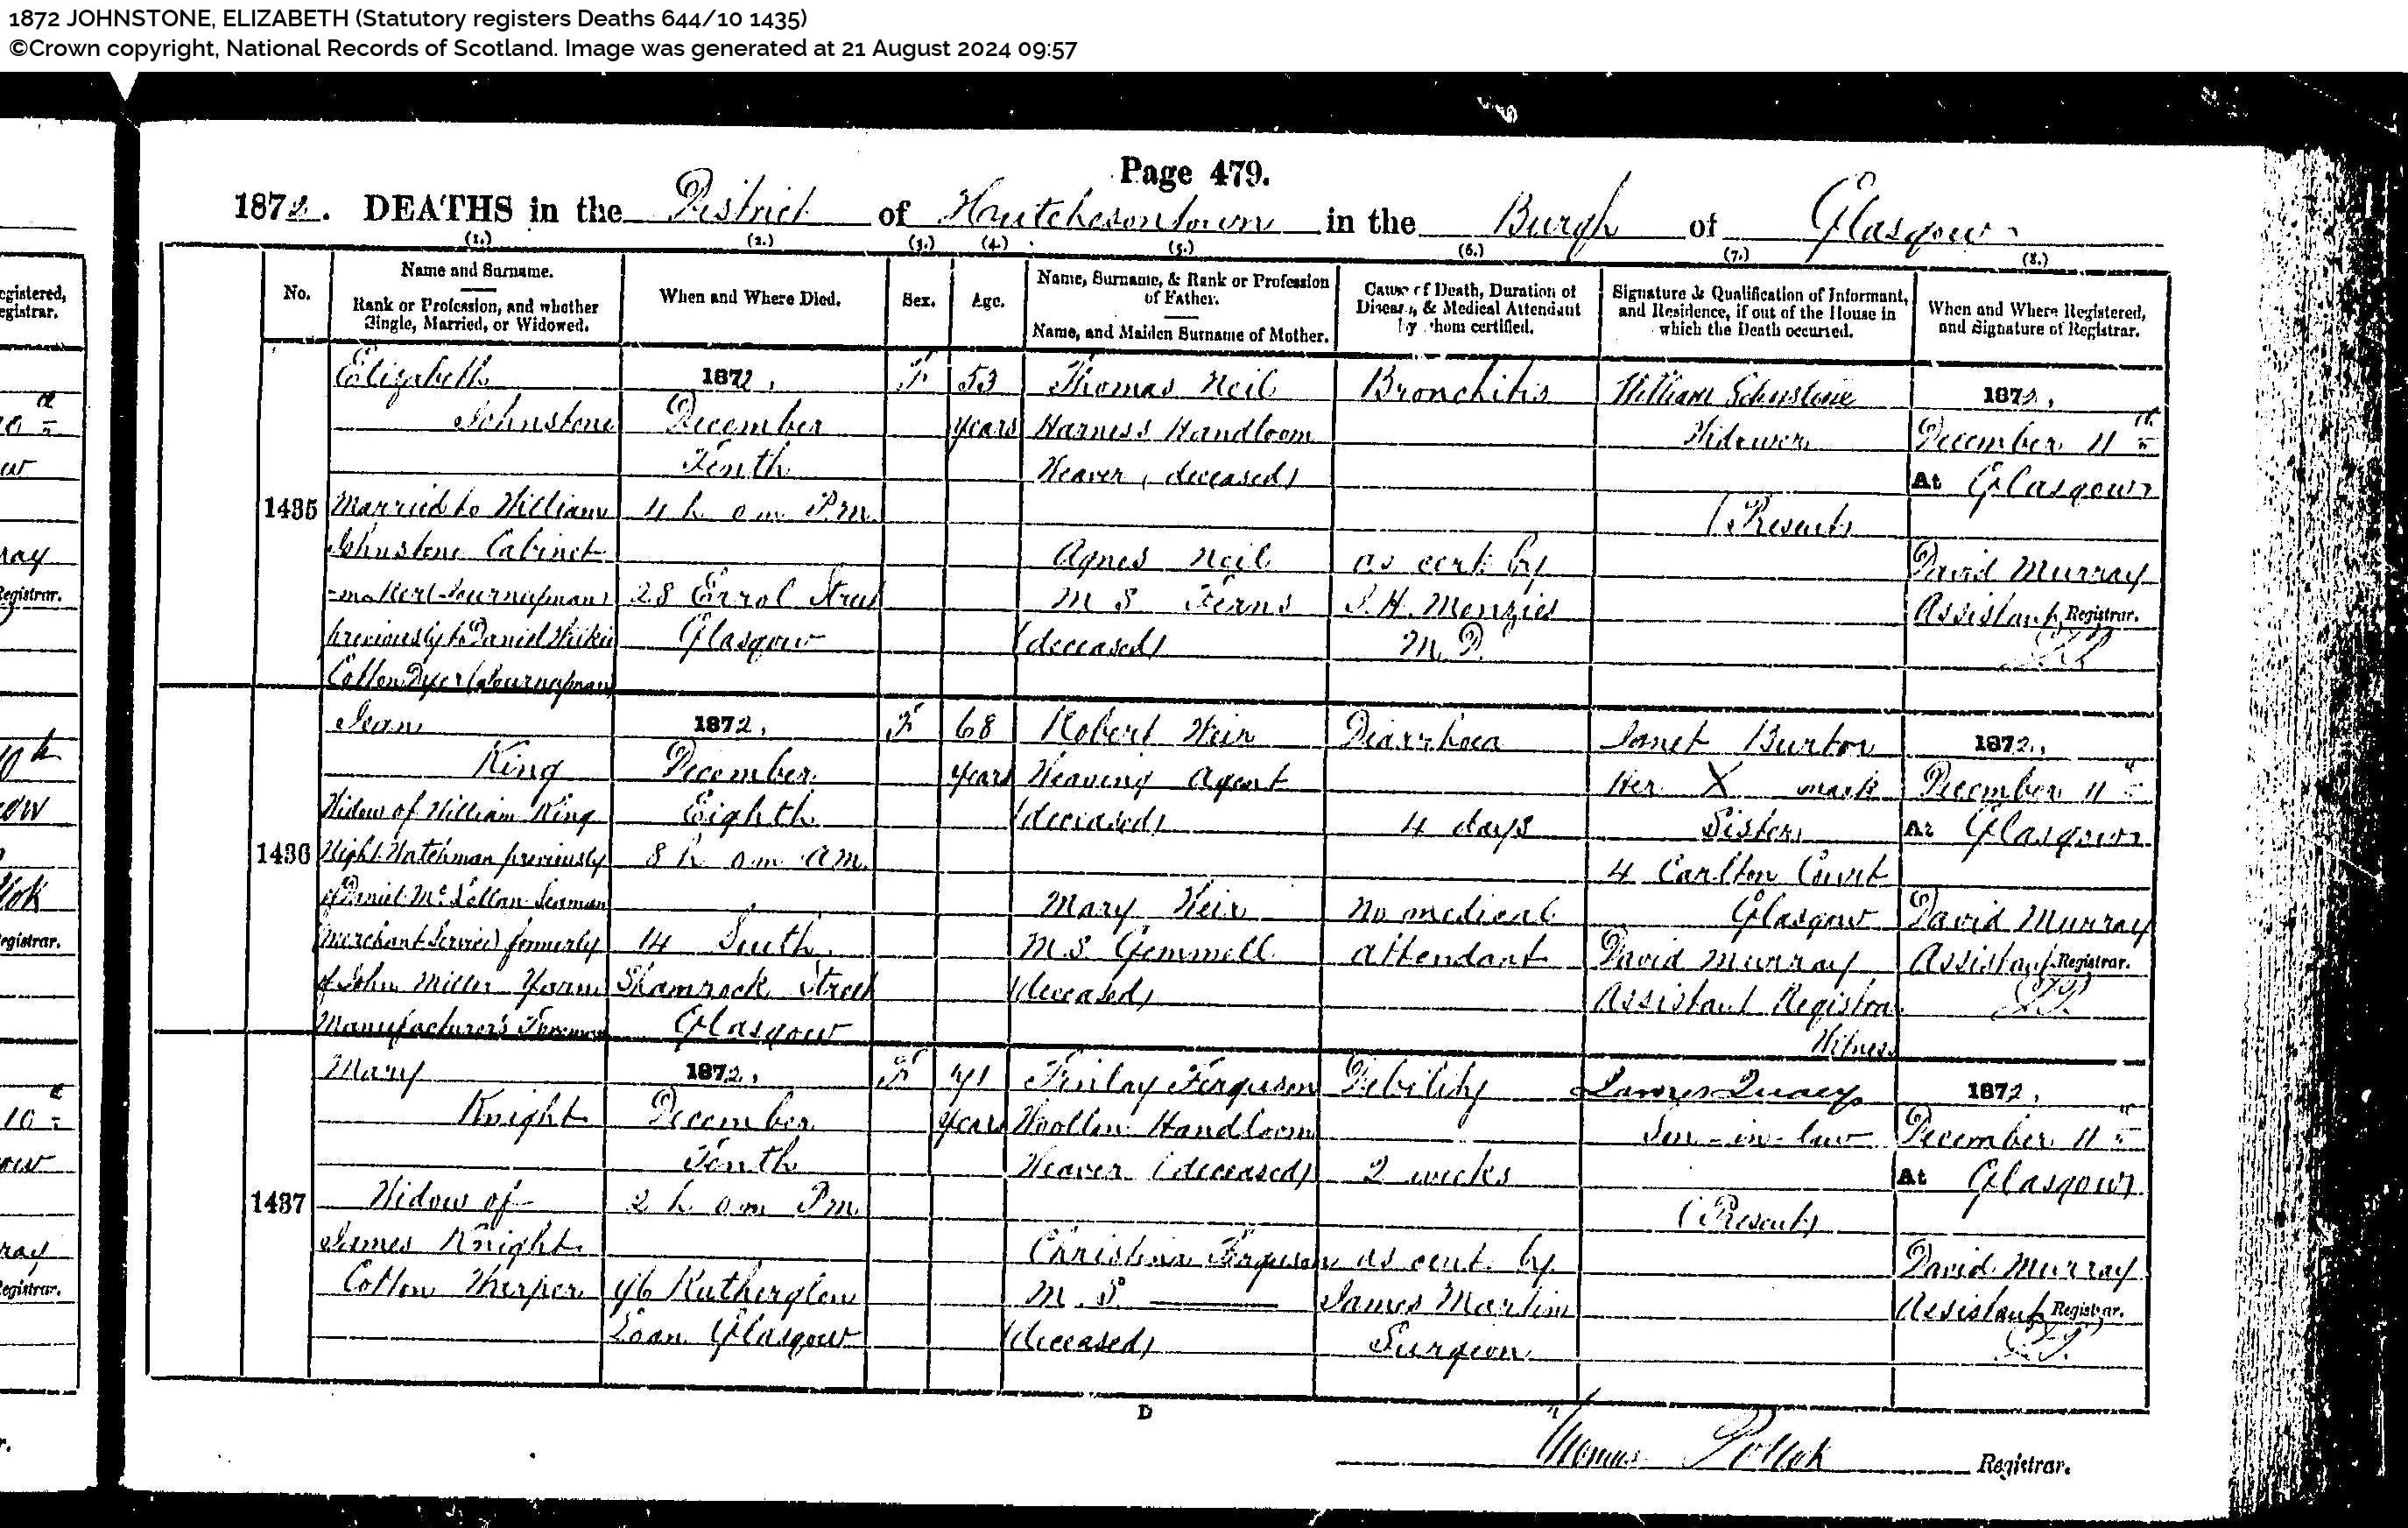 1872 JOHNSTONE, ELIZABETH (Statutory registers Deaths 644/10 1435)
©Crown copyright, National Records of Scotland. Image was generated at 21 August 2024 09:57
Page 479.
1872. DEATHS in the District of Hutchesontown in the Burgh of Glasgow
(1.) (2.) (3.) (4.) (5.) (6.) (7.) (8.)
No.
Name and Surname.
Rank or Profession, and whether
Single, Married, or Widowed.
When and Where Died.
Sex.
Age.
Name, Surname, & Rank or Profession
of Father.
Name, and Maiden Surname of Mother.
Cause of Death, Duration of
Disease, & Medical Attendant
by whom certified.
Signature & Qualification of Informant,
and Residence, if out of the House in
which the Death occurred.
When and Where Registered,
and Signature of Registrar.
1435
Elizabeth
Johnstone
Married to William
Johnstone Cabinet
-maker (Journeyman)
previously to Daniel Wilkie
Cotton Dyer (Journeyman)
1872.
December
Tenth
4 h 0 m P.M.
28 Errol Street
Glasgow
F
53
years
Thomas Neil
Harness Handloom
Weaver (deceased)
Agnes Neil
M S Ferns
(deceased)
Bronchitis
as cert by
J. H. Menzies
M.D.
William Johnstone
Widower
(Present)
1872.
December 11th
At Glasgow
David Murray
Assistant Registrar.
1436
Jean
King
Widow of William King
Night Watchman previously
of Daniel McLellan Seaman
(Merchant Service) formerly
of John Miller Yarn
Manufacturer's Foreman
1872.
December
Eighth
8 h 0 m A.M.
14 South
Shamrock Street
Glasgow
F
68
years
Robert Weir
Weaving Agent
(deceased)
Mary Weir
M.S. Gemmell
(deceased)
Diarrhoea
4 days
No medical
attendant
Janet Burton
Her X mark
Sister
4 Carlton Court
Glasgow
David Murray
Assistant Registrar
Witness
1872.
December 11
At Glasgow
David Murray
Assistant Registrar.
1437
Mary
Knight
Widow of
James Knight
Cotton Warper
1872.
December
Tenth
2 h 0 m P.M.
46 Rutherglen
Loan Glasgow
F
71
years
Finlay Ferguson
Woollen Handloom
Weaver (deceased)
Christina Ferguson
M.S. ———
(deceased)
Debility
2 weeks
as cert. by
James Martin
Surgeon
Son-in-law
(Present)
1872.
December 11
At Glasgow
David Murray
Assistant Registrar.
D
Thomas Pollok Registrar.